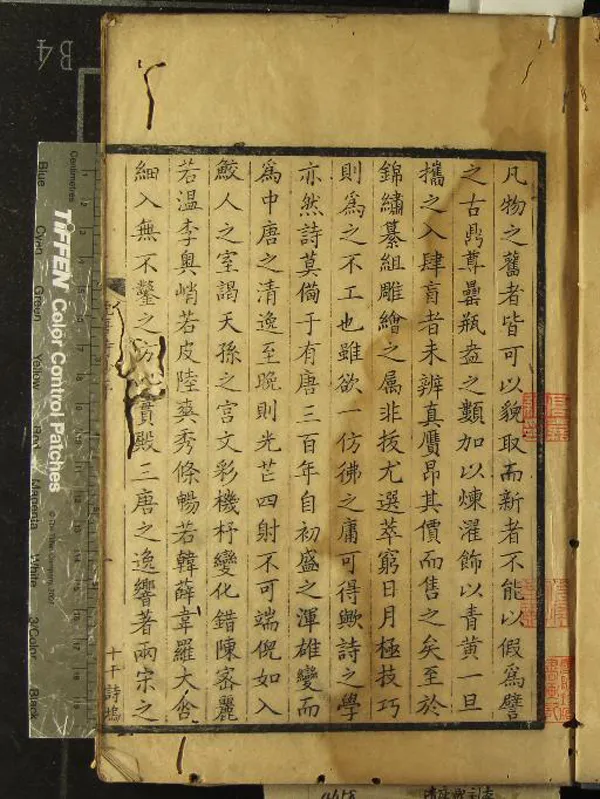 凡物之舊者皆可以貌取而新者不能以假為譬
之古鼎尊罍瓶盎之類加以煉濯飾以青黃一旦
攜之入肆盲者未辨真贗昂其價而售之矣至於
錦繡纂組雕繪之屬非拔尤選萃窮日月極技巧
則為之不工也雖欲一仿彿之庸可得歟詩之學
亦然詩莫備于有唐三百年自初盛之渾雄變而
為中唐之清逸至晚則光芒四射不可端倪如入
鮫人之室謁天孫之宮文彩機杼變化錯陳密麗
若溫李奧峭若皮陸爽秀條暢若韓薛韋羅大含
細入無不鑿之方 實殿三唐之逸響著兩宋之
十干詩塢
B4
Centimetres
TIFFEN Color Control Patches
© The Tiffen Company, 2007
Blue Cyan Green Yellow Red Magenta White 3/Color Black